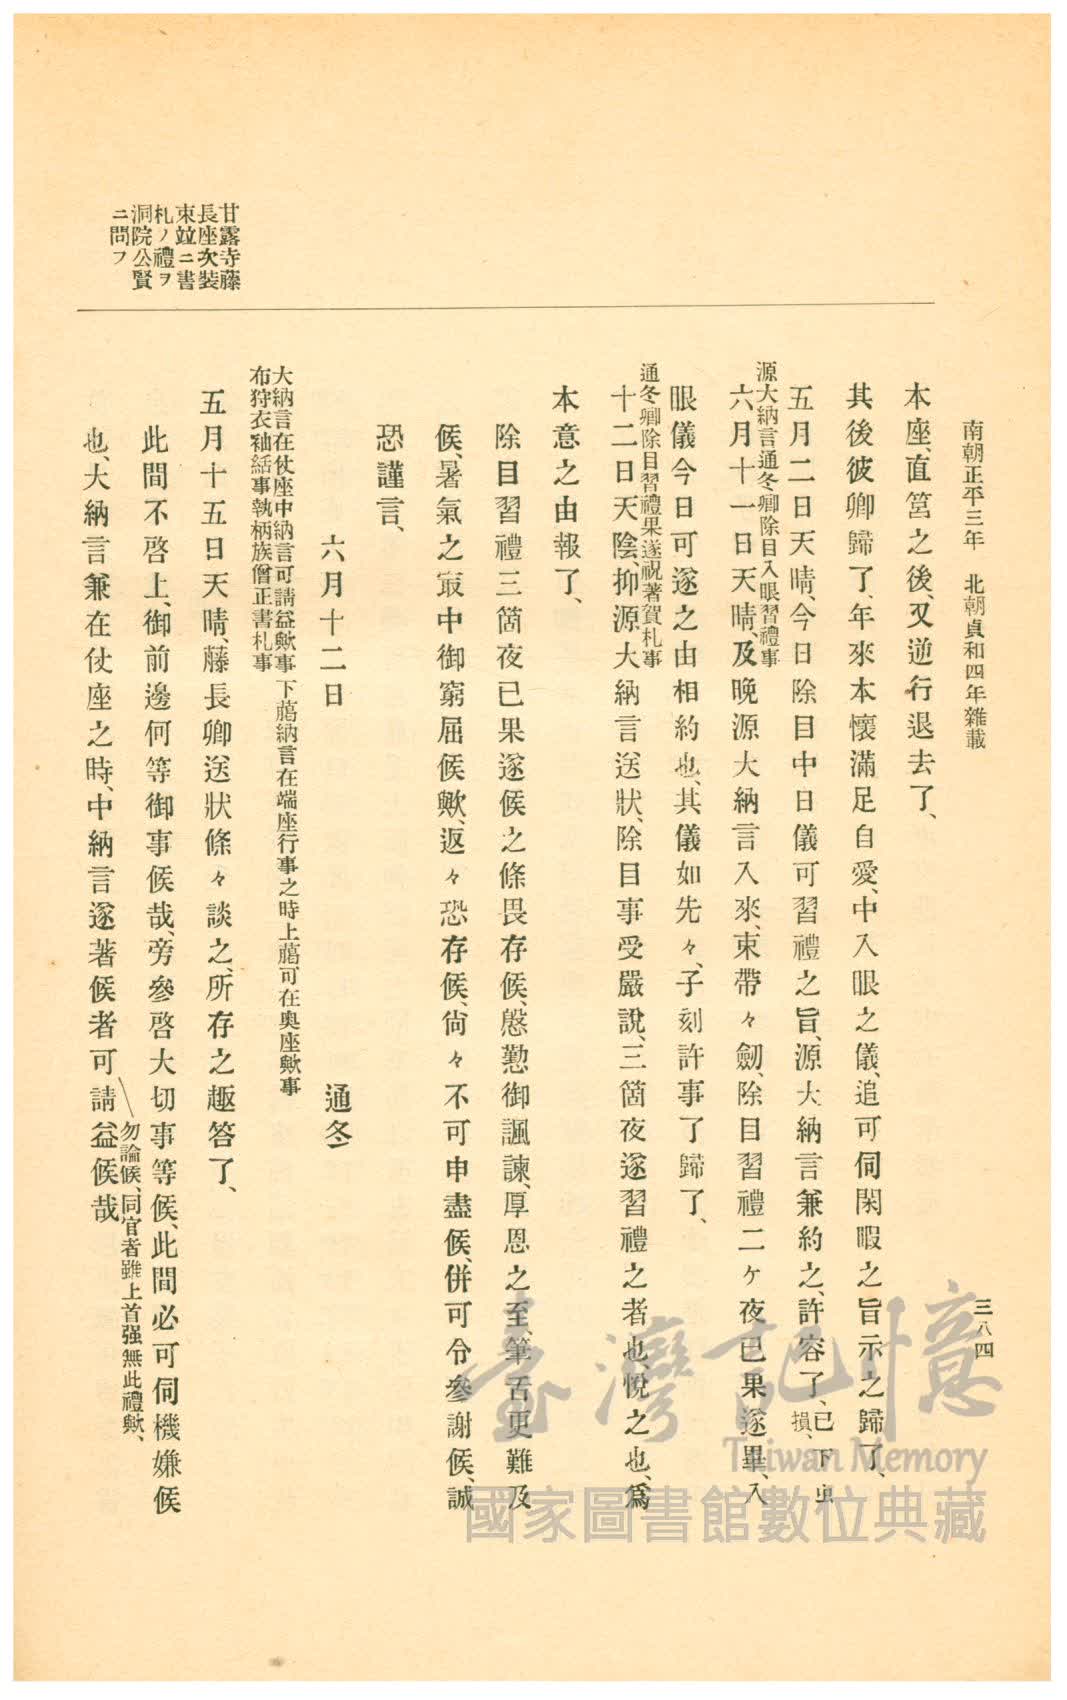 南朝正平三年　北朝貞和四年雜載
三八四
本座、直筥之後、又逆行退去了、
其後彼卿歸了、年來本懷滿足自愛、中入眼之儀、追可伺閑暇之旨示之歸了、
五月二日天晴、今日除目中日儀可習禮之旨、源大納言兼約之、許容了、已下虫損、
源大納言通冬卿除目入眼習禮事
六月十一日天晴、及晚源大納言入來、束帶々劒、除目習禮二ケ夜已果遂畢、入
眼儀今日可遂之由相約也、其儀如先々、子刻許事了歸了、
通冬卿除目習禮果遂祝著賀札事
十二日天陰、抑源大納言送狀、除目事受嚴說、三箇夜遂習禮之者也、悅之也、爲
本意之由報了、
除目習禮三箇夜已果遂候之條畏存候、慇懃御諷諫、厚恩之至、筆舌更難及
候、暑氣之㝡中御窮屈候歟、返々恐存候、尙々不可申盡候、併可令參謝候、誠
恐謹言、
六月十二日　通冬
大納言在仗座中納言可請益歟事　下﨟納言在端座行事之時上﨟可在奧座歟事
布狩衣袖結事執柄族僧正書札事
五月十五日天晴、藤長卿送狀條々談之、所存之趣答了、
此間不啓上、御前邊何等御事候哉、旁參啓大切事等候、此間必可伺機嫌候
也、大納言兼在仗座之時、中納言遂著候者可請益候哉
勿論候、同官者雖上首强無此禮歟、
甘露寺藤
長座次裝
束竝ニ書
札ノ禮ヲ
洞院公賢
ニ問フ
臺灣記憶
Taiwan Memory
國家圖書館數位典藏